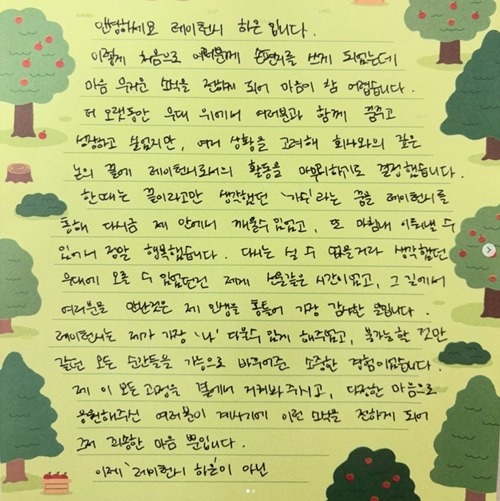 안녕하세요 레이턴시 하은 입니다.
이렇게 처음으로 여러분께 손편지를 쓰게 되었는데
마음 무거운 소식을 전하게 되어 마음이 참 어렵습니다.
더 오랫동안 무대 위에서 여러분과 함께 꿈꾸고
성장하고 싶었지만, 여러 상황을 고려해 회사와의 깊은
논의 끝에 레이턴시로서의 활동을 마무리하기로 결정했습니다.
한때는 끝이라고만 생각했던 '가수'라는 꿈을 레이턴시를
통해 다시금 제 안에서 깨울수 있었고, 또 마침내 이뤄낼 수
있어서 정말 행복했습니다. 다시는 설 수 없을거라 생각했던
무대에 오를 수 있었던건 제게 선물같은 시간이었고, 그 길에서
여러분을 만난것은 제 인생을 통틀어 가장 감사한 일입니다.
레이턴시는 제가 가장 '나' 다울수 있게 해주었고, 불가능할 것만
같던 모든 순간들을 가능으로 바꾸어준 소중한 경험이었습니다.
제 이 모든 과정을 곁에서 지켜봐 주시고, 다정한 마음으로
응원해주신 여러분이 계시기에 이런 소식을 전하게 되어
그저 죄송한 마음 뿐입니다.
이제 '레이턴시 하은'이 아닌